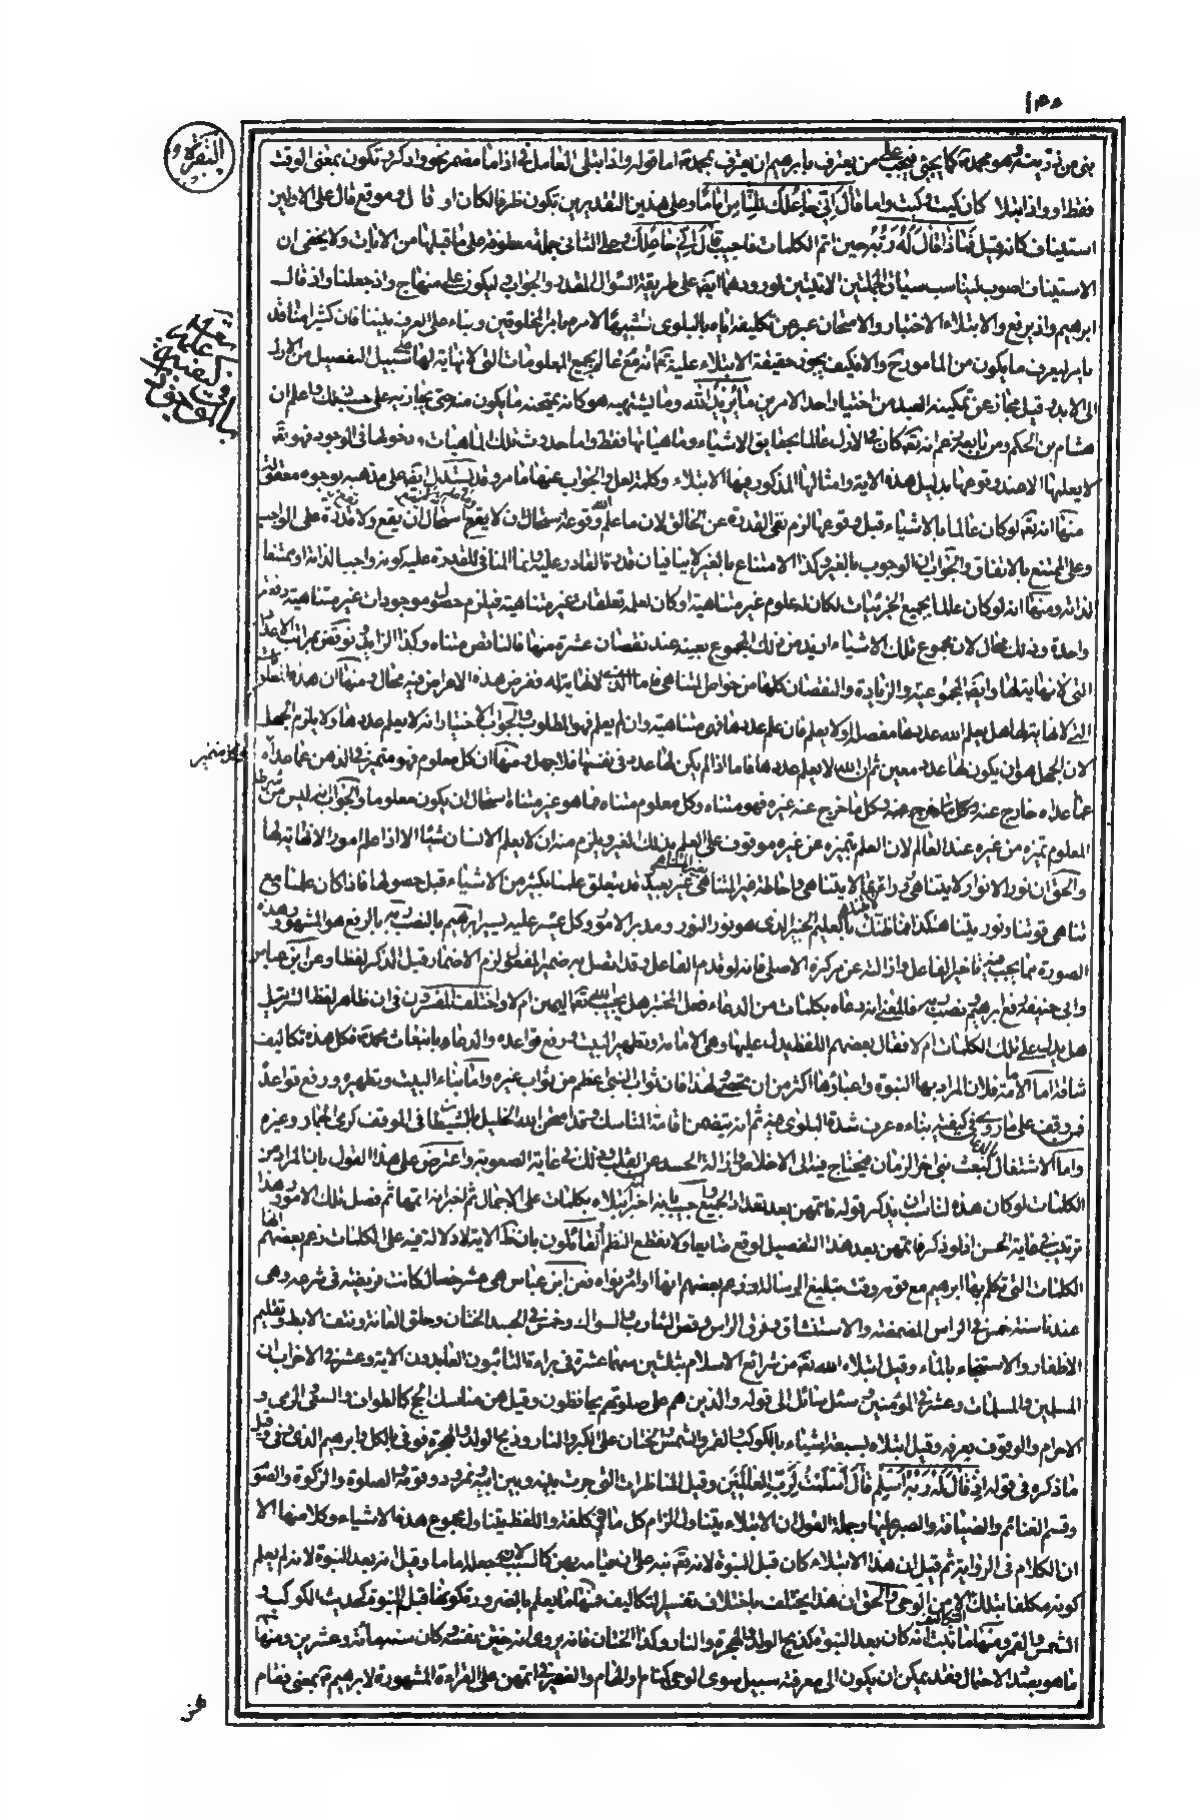 ١٣٥
البقرة
بنى من ذريته وهو محمد كما يجئ فيجب على من يعترف بابراهيم ان يعترف بمحمد اما قوله واذ ابتلى العامل فى اذ اما مضمر نحو واذكر وتكون بمعنى الوقت
فقط او واذ ابتلاه كان كيت وكيت واما قال انى جاعلك للناس اماما وعلى هذين التقديرين تكون ظرفا لكان او قال وموقع قال على الاولين
استيناف كانه قيل فماذا قال له ربه حين اتم الكلمات فاجيب قال انى جاعلك وعلى الثانى جملة معطوفة على ما قبلها من الايات ولا يخفى ان
الاستيناف اصوب ليناسب سياق الجملتين الاتيتين لورودهما ايضا على طريقة السؤال المقدر والجواب ليكون على منهاج واذ جعلنا واذ قال
ابرهيم واذ يرفع والابتلاء الاختبار والامتحان عبر عن تكليفه اياه بالبلوى تشبيها لامره بامر المخلوقين وبناء على العرف بيننا فان كثيرا منا قد
يامر ليعرف ما يكون من المامور والا فكيف يجوز حقيقة الابتلاء عليه تعالى مع انه عالم بجميع المعلومات التى لا نهاية لها على سبيل التفصيل من الازل
الى الابد وقيل مجاز عن تمكينه العبد من اختيار احد الامرين ما يريد الله وما يشتهيه هو كانه يمتحنه ما يكون منه حتى يجازيه على حسب ذلك واعلم ان
هشام بن الحكم ومن تابعه زعم انه تعالى كان فى الازل عالما بحقايق الاشياء وماهياتها فقط واما حدوث تلك الماهيات ودخولها فى الوجود فهو تعالى
لا يعلمها الا عند وقوعها بدليل هذه الاية وامثالها المذكور فيها الابتلاء وكلمة لعل والجواب عنها ما مر وقد يستدل ايضا على مذهبه بوجوه معقولة
منها انه تعالى لو كان عالما بالاشياء قبل وقوعها لزم نفى القدرة عن الخالق لان ما علم الله وقوعه استحال ان لا يقع وما علم انه لا يقع استحال ان يقع ولا قدرة على الواجب
وعلى الممتنع بالاتفاق والجواب ان الوجوب بالغير وكذا الامتناع بالغير لا ينافيان قدرة القادر عليه انما المنافى للقدرة عليه كونه واجبا لذاته او ممتنعا
لذاته ومنها انه لو كان عالما بجميع الجزئيات لكان له علوم غير متناهية او كان لعلمه تعلقات غير متناهية فيلزم حصول موجودات غير متناهية دفعة
واحدة وذلك محال لان مجموع تلك الاشياء ازيد من ذلك المجموع بعينه عند نقصان عشرة منها فالناقص متناه وكذا الزايد ونوقض بمراتب الاعداد
التى لا نهاية لها وايضا المجموعية والزيادة والنقصان كلها من خواص المتناهى فاما الذى لا نهاية له ففرض هذه الاعراض فيه محال ومنها ان هذه المعلومات
التى لا نهاية لها هل يعلم الله عددها مفصلا او لا يعلم فان علم عددها فهى متناهية وان لم يعلم فهو المطلوب والجواب الاختيار انه لا يعلم عددها ولا يلزم الجهل
لان الجهل هو ان يكون لها عدد معين ثم ان الله لا يعلم عددها فاما اذا لم يكن لها عدد فى نفسها فلا جهل ومنها ان كل معلوم فهو متميز فى الذهن عما عداه
عما عداه خارج عنه وكل ما خرج عنه غيره فهو متناه وكل معلوم متناه فما هو غير متناه استحال ان يكون معلوما والجواب انه ليس من شرط
المعلوم تميزه من غيره عند العالم لان العلم بتميزه عن غيره موقوف على العلم بذلك الغير ويلزم منه ان لا يعلم الانسان شيئا الا اذا علم امورا لا نهاية لها
والحق ان نور الانوار لا يتناهى وراء ما لا يتناهى واحاطة غير المتناهى بغير المتناهى غير بعيد وقد يتعلق علمنا بكثير من الاشياء قبل حصولها فاذا كان علمنا مع
تناهى قوتنا ونوريتنا هكذا فما ظنك بالعليم الخبير الذى هو نور النور ومدبر الامور وكل عسير عليه يسير ابرهيم بالنصب ربه بالرفع هو المشهور وهذه
الصورة مما يجب فيه تاخير الفاعل واذ الته عن مركزه الاصلى فانه لو قدم الفاعل وقد اتصل به ضمير المفعول لزم الاضمار قبل الذكر لفظا وعن ابن عباس
وابى حنيفة رفع ابرهيم ونصب ربه فالمعنى انه دعاه بكلمات من الدعاء فعل المختبر هل يجيبه الله تعالى اليهن ام لا واختلف المفسرون فى ان ظاهر لفظ التنزيل
هل يدل على تلك الكلمات ام لا فقال بعضهم اللفظ يدل عليها وهى الامامة وتطهير البيت ورفع قواعده والدعاء بابتعاث محمد فكل هذه تكاليف
شاقة اما الامامة فلان المراد بها النبوة واعباؤها اكثر من ان تحصى لهذا فان ثواب النبى اعظم من ثواب غيره واما بناء البيت وتطهيره ورفع قواعده
فمن وقف على ما روى فى كيفية بنائه عرف شدة البلوى فيه ثم انه يتضمن اقامة المناسك وقد امتحن الله الخليل بالشيطان فى الموقف لرمى الجمار وغيره
واما الاشتغال بالدعاء لبعث نبى اخر الزمان فيحتاج فيه الى الاخلاص وازالة الحسد عن القلب وفى ذلك غاية الصعوبة واعترض على هذا القول بان المراد من
الكلمات لو كان هذه لناسب ان يذكر قوله فاتمهن بعد تعداد الجميع واجيب بانه اخبر انه ابتلاه بكلمات على الاجمال ثم اخبر انه اتمها ثم فصل تلك الامور وهذا
ترتيب فى غاية الحسن اذ لو ذكر فاتمهن بعد هذا التفصيل لوقع ضايعا ولانقطع النظم القائلون بان ظاهر الاية لا دلالة فيه على الكلمات زعم بعضهم انها
الكلمات التى تكلم بها ابرهيم مع قومه وقت تبليغ الرسالة وزعم بعضهم انها اوامر ونواه فعن ابن عباس هى عشر خصال كانت فريضة فى شرعه وهى
عندنا سنة خمس فى الراس المضمضة والاستنشاق وفرق الراس وقص الشارب والسواك وخمس فى الجسد الختان وحلق العانة ونتف الابط وتقليم
الاظفار والاستنجاء بالماء وقيل ابتلاه الله تعالى من شرائع الاسلام بثلاثين سهما عشرة فى براءة التائبون العابدون الاية وعشر فى الاحزاب ان
المسلمين والمسلمات وعشر فى المؤمنين وسئل سائل الى قوله والذين هم على صلوتهم يحافظون وقيل هن مناسك الحج كالطواف والسعى والرمى و
الاحرام والوقوف بعرفه وقيل ابتلاه بسبعة اشياء بالكوكب والقمر والشمس والختان على الكبر والنار وذبح الولد والهجرة فوفى بالكل وابرهيم الذى وفى وقيل
ما ذكره فى قوله اذ قال له ربه اسلم قال اسلمت لرب العالمين وقيل المناظرات التى جرت بينه وبين ابيه ونمرود وقومه والصلوة والزكوة والصوم
وقسم الغنائم والضيافة والصبر عليها وجملة القول ان الابتلاء يتناول الزام كل ما فى كلفة واللفظ يتناول مجموع هذه الاشياء وكلا منها الا
ان الكلام فى الرواية ثم قيل ان هذا الابتلاء كان قبل النبوة لانه تعالى نبه على ان قيامه بهن كالسبب لان يجعله اماما وقيل انه بعد النبوة لانه لم يعلم
كونه مكلفا بتلك التكاليف الا من الوحى والحق ان هذا يختلف باختلاف تفسير التكاليف فمنها ما يعلم بالضرورة كونها قبل النبوة كحديث الكوكب و
الشمس والقمر ومنها ما ثبت انه كان بعد النبوة كذبح الولد والهجرة والنار وكذا الختان فانه يروى انه ختن نفسه وكان سنه مائة وعشرين ومنها
ما هو بصدد الاحتمال فقد يمكن ان يكون الى معرفته سبيل سوى الوحى كمنام او الهام والضمير فى اتمهن على القراءة المشهورة لابرهيم بمعنى فقام